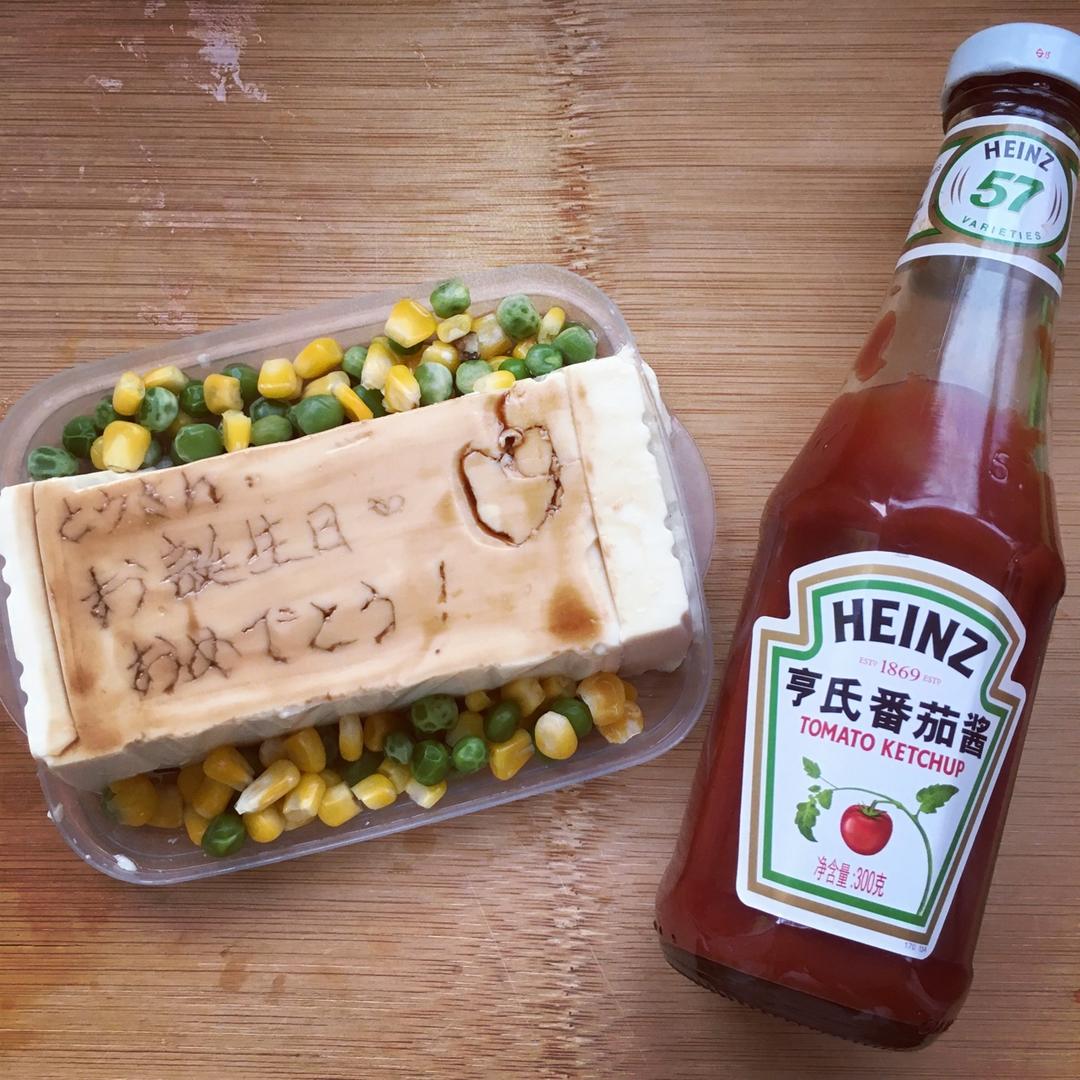 とうさん、
お誕生日
おめでとう!
HEINZ
57
VARIETIES
HEINZ
ESTD 1869 ESTD
亨氏番茄酱
TOMATO KETCHUP
净含量:300克